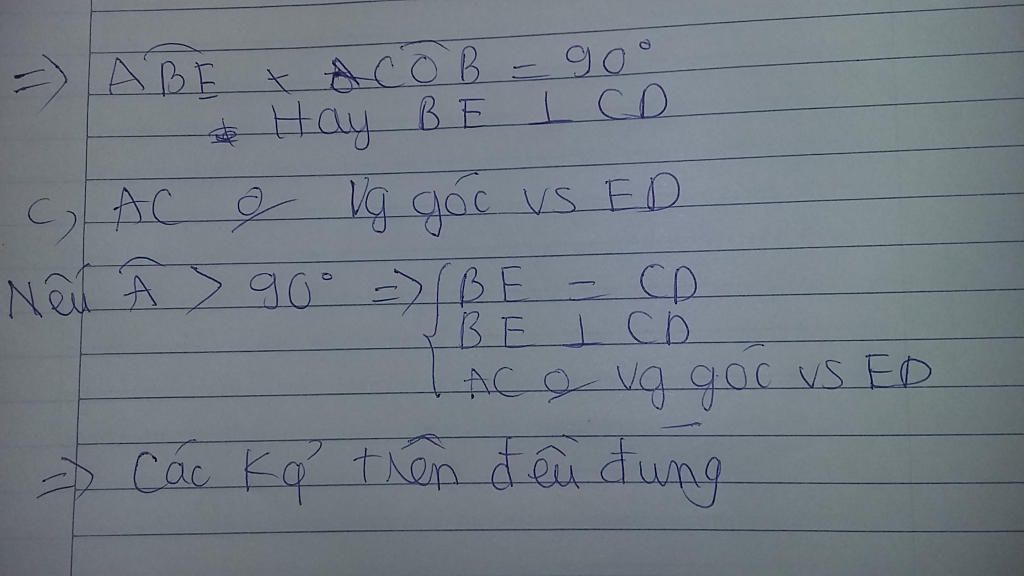 => ABE + ACOB = 90°
Hay BE ⊥ CD
c, AC o vg góc vs ED
Nếu A > 90° => { BE = CD
BE ⊥ CD
AC o vg góc vs ED
=> Các Kq' trên đều đúng